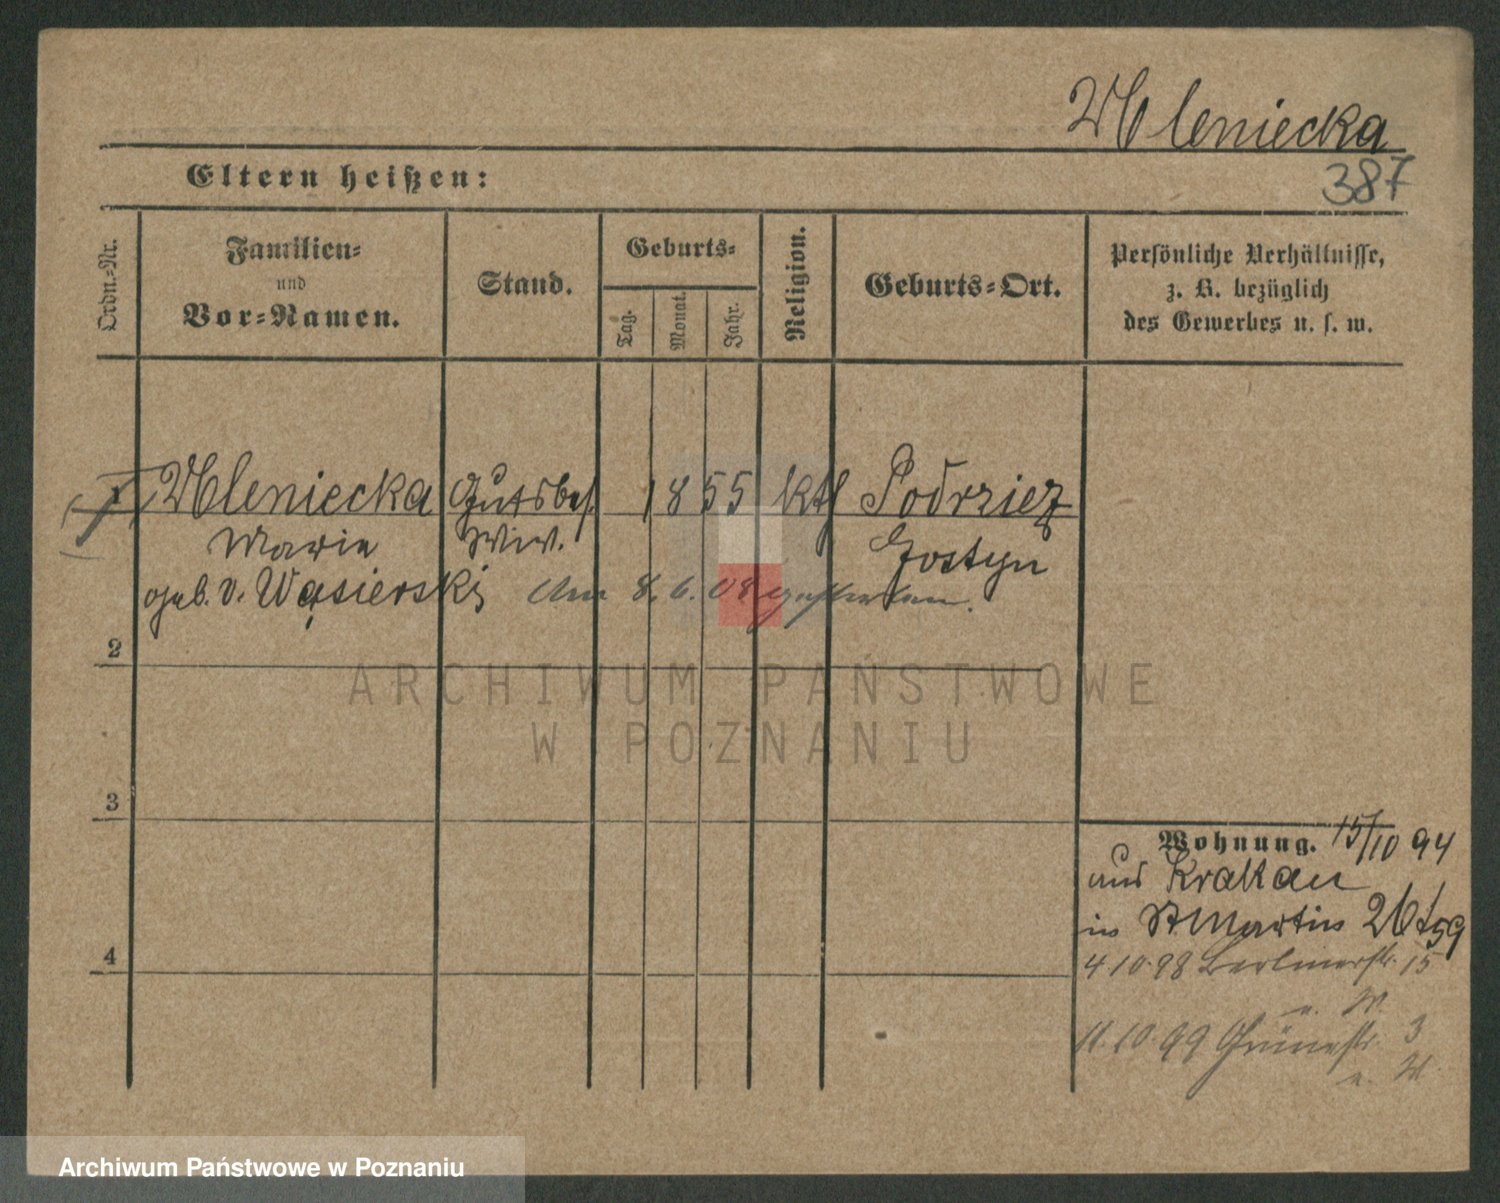 Wleniecka
387
Eltern heißen:
Ordn.-Nr.
Familien-
und
Vor-Namen.
Stand.
Geburts-
Tag.
Monat.
Jahr.
Religion.
Geburts-Ort.
Persönliche Verhältnisse,
z. B. bezüglich
des Gewerbes u. s. w.
1 Wleniecka Gutsbes. 1855 kth Podrzież
Marie Wiw. Gostyn
geb. v. Wąsierski Am 8.6.08 gestorben.
2
ARCHIWUM PAŃSTWOWE
W POZNANIU
3
Wohnung. 15/10 94
aus Krakau
in St. Martin 26 59
4
4.10.98 Berlinerstr. 15
u. W.
11.10.99 Grünestr. 3
u. W.
Archiwum Państwowe w Poznaniu